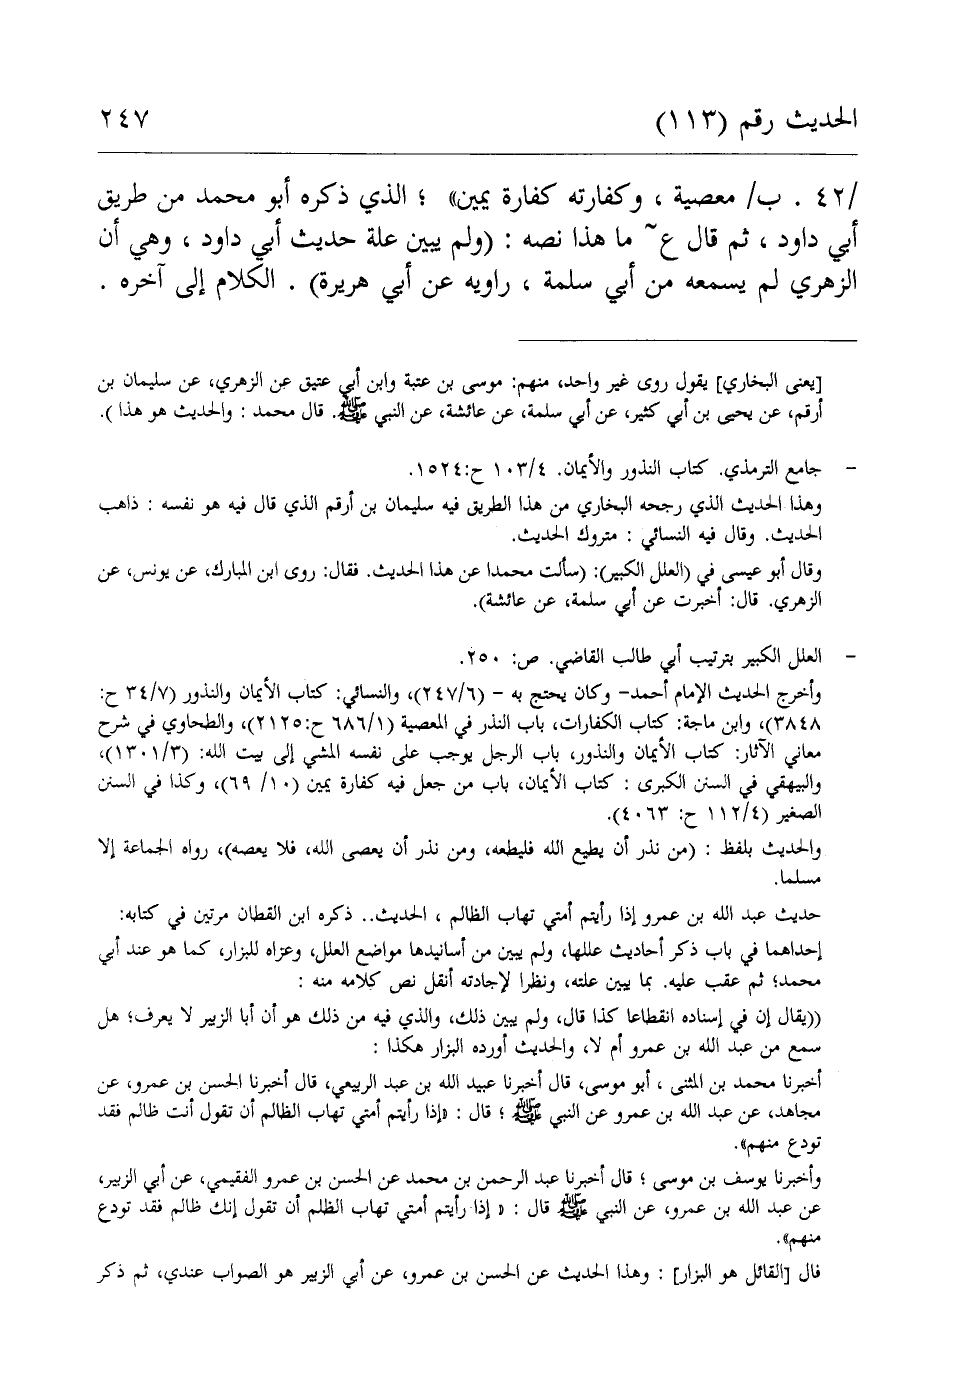 الحديث رقم (١١٣)
٢٤٧
/٤٢ . ب/ معصية ، وكفارته كفارة يمين» ؛ الذي ذكره أبو محمد من طريق
أبي داود ، ثم قال ع~ ما هذا نصه : (ولم يبين علة حديث أبي داود ، وهي أن
الزهري لم يسمعه من أبي سلمة ، راويه عن أبي هريرة) . الكلام إلى آخره .
[يعني البخاري] يقول روى غير واحد، منهم: موسى بن عتبة وابن أبي عتيق عن الزهري، عن سليمان بن
أرقم، عن يحيى بن أبي كثير، عن أبي سلمة، عن عائشة، عن النبي ﷺ. قال محمد : والحديث هو هذا ).
– جامع الترمذي. كتاب النذور والأيمان. ١٠٣/٤ ح:١٥٢٤.
وهذا الحديث الذي رجحه البخاري من هذا الطريق فيه سليمان بن أرقم الذي قال فيه هو نفسه : ذاهب
الحديث. وقال فيه النسائي : متروك الحديث.
وقال أبو عيسى في (العلل الكبير): (سألت محمدا عن هذا الحديث. فقال: روى ابن المبارك، عن يونس، عن
الزهري. قال: أخبرت عن أبي سلمة، عن عائشة).
– العلل الكبير بترتيب أبي طالب القاضي. ص: ٢٥٠.
وأخرج الحديث الإمام أحمد– وكان يحتج به – (٢٤٧/٦)، والنسائي: كتاب الأيمان والنذور (٣٤/٧ ح:
٣٨٤٨)، وابن ماجة: كتاب الكفارات، باب النذر في المعصية (٦٨٦/١ ح:٢١٢٥)، والطحاوي في شرح
معاني الآثار: كتاب الأيمان والنذور، باب الرجل يوجب على نفسه المشي إلى بيت الله: (١٣٠١/٣)،
والبيهقي في السنن الكبرى : كتاب الأيمان، باب من جعل فيه كفارة يمين (١٠/ ٦٩)، وكذا في السنن
الصغير (١١٢/٤ ح: ٤٠٦٣).
والحديث بلفظ : (من نذر أن يطيع الله فليطعه، ومن نذر أن يعصى الله، فلا يعصه)، رواه الجماعة إلا
مسلما.
حديث عبد الله بن عمرو إذا رأيتم أمتي تهاب الظالم ، الحديث.. ذكره ابن القطان مرتين في كتابه:
إحداهما في باب ذكر أحاديث عللها، ولم يبين من أسانيدها مواضع العلل، وعزاه للبزار، كما هو عند أبي
محمد؛ ثم عقب عليه. بما يبين علته، ونظرا لإجادته أنقل نص كلامه منه :
((يقال إن في إسناده انقطاعا كذا قال، ولم يبين ذلك، والذي فيه من ذلك هو أن أبا الزبير لا يعرف؛ هل
سمع من عبد الله بن عمرو أم لا، والحديث أورده البزار هكذا :
أخبرنا محمد بن المثنى ، أبو موسى، قال أخبرنا عبيد الله بن عبد الربيعي، قال أخبرنا الحسن بن عمرو، عن
مجاهد، عن عبد الله بن عمرو عن النبي ﷺ ؛ قال : «إذا رأيتم أمتي تهاب الظالم أن تقول أنت ظالم فقد
تودع منهم».
وأخبرنا يوسف بن موسى ؛ قال أخبرنا عبد الرحمن بن محمد عن الحسن بن عمرو الفقيمي، عن أبي الزبير،
عن عبد الله بن عمرو، عن النبي ﷺ قال : « إذا رأيتم أمتي تهاب الظلم أن تقول إنك ظالم فقد تودع
منهم».
قال [القائل هو البزار] : وهذا الحديث عن الحسن بن عمرو، عن أبي الزبير هو الصواب عندي، ثم ذكر